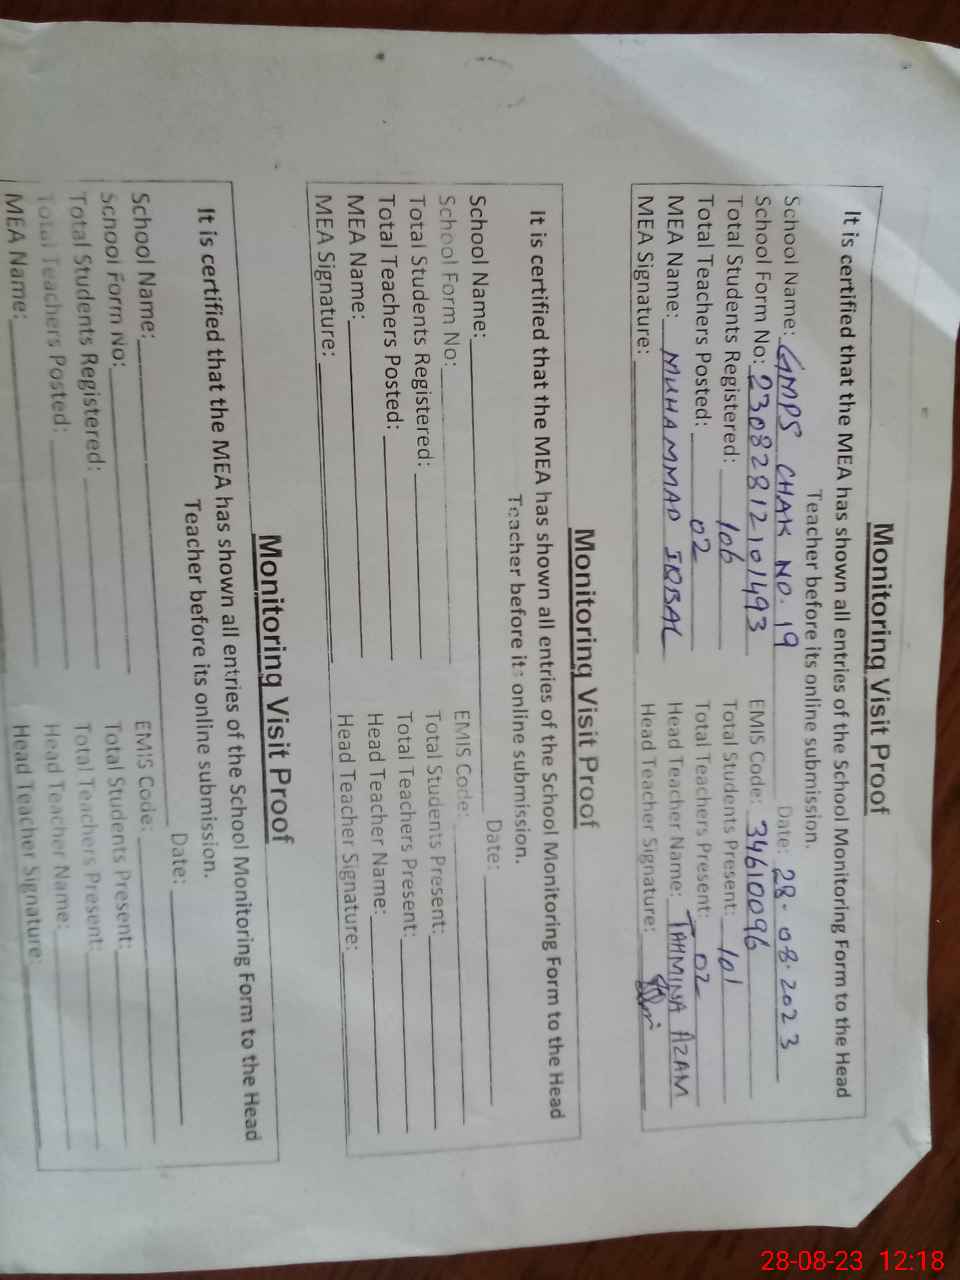 Monitoring Visit Proof
It is certified that the MEA has shown all entries of the School Monitoring Form to the Head
Teacher before its online submission.
School Name: GMPS CHAK NO. 19 Date: 28.08.2023
School Form No: 23082812101493 EMIS Code: 34610096
Total Students Registered: 106 Total Students Present: 101
Total Teachers Posted: 02 Total Teachers Present: 02
MEA Name: MUHAMMAD IQBAL Head Teacher Name: TAHMINA AZAM
MEA Signature: Head Teacher Signature:
Monitoring Visit Proof
It is certified that the MEA has shown all entries of the School Monitoring Form to the Head
Teacher before its online submission.
School Name: Date:
School Form No: EMIS Code:
Total Students Registered: Total Students Present:
Total Teachers Posted: Total Teachers Present:
MEA Name: Head Teacher Name:
MEA Signature: Head Teacher Signature:
Monitoring Visit Proof
It is certified that the MEA has shown all entries of the School Monitoring Form to the Head
Teacher before its online submission.
School Name: Date:
School Form No: EMIS Code:
Total Students Registered: Total Students Present:
Total Teachers Posted: Total Teachers Present:
MEA Name: Head Teacher Name:
Head Teacher Signature:
28-08-23 12:18